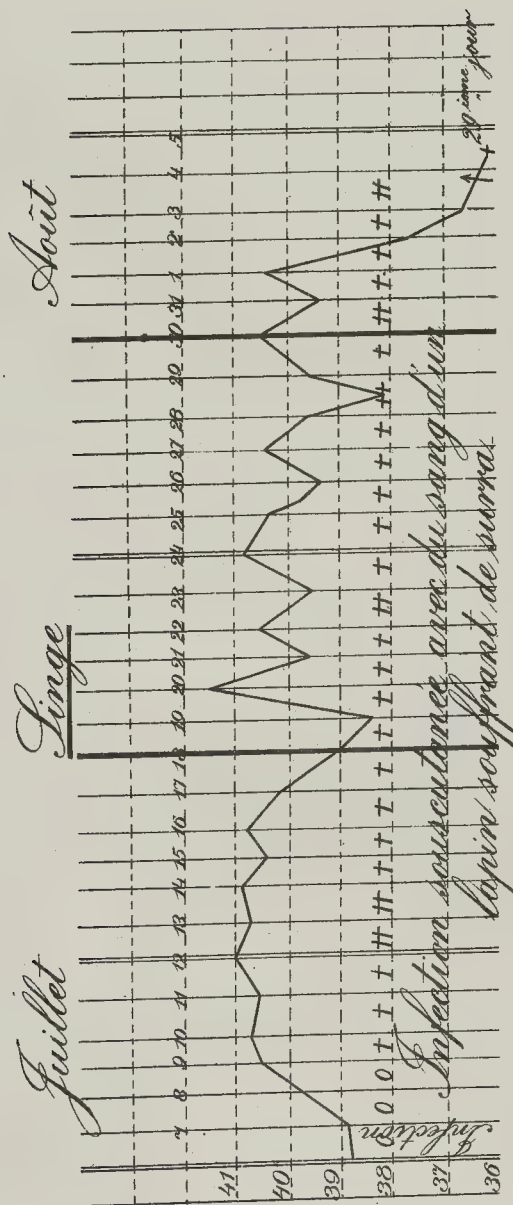 Juillet
Singe
Août
7 8 9 10 11 12 13 14 15 16 17 18 19 20 21 22 23 24 25 26 27 28 29 30 31 1 2 3 4 5
41
40
39
38
37
36
Infection
0 0 0 + + + ++ ++ ++ + + + + + + + ++ + + + + + ++ + + ++ + + ++
Infection sousculanée avec du sang d'un
lapin souffrant de surra.
+ 29ième jour